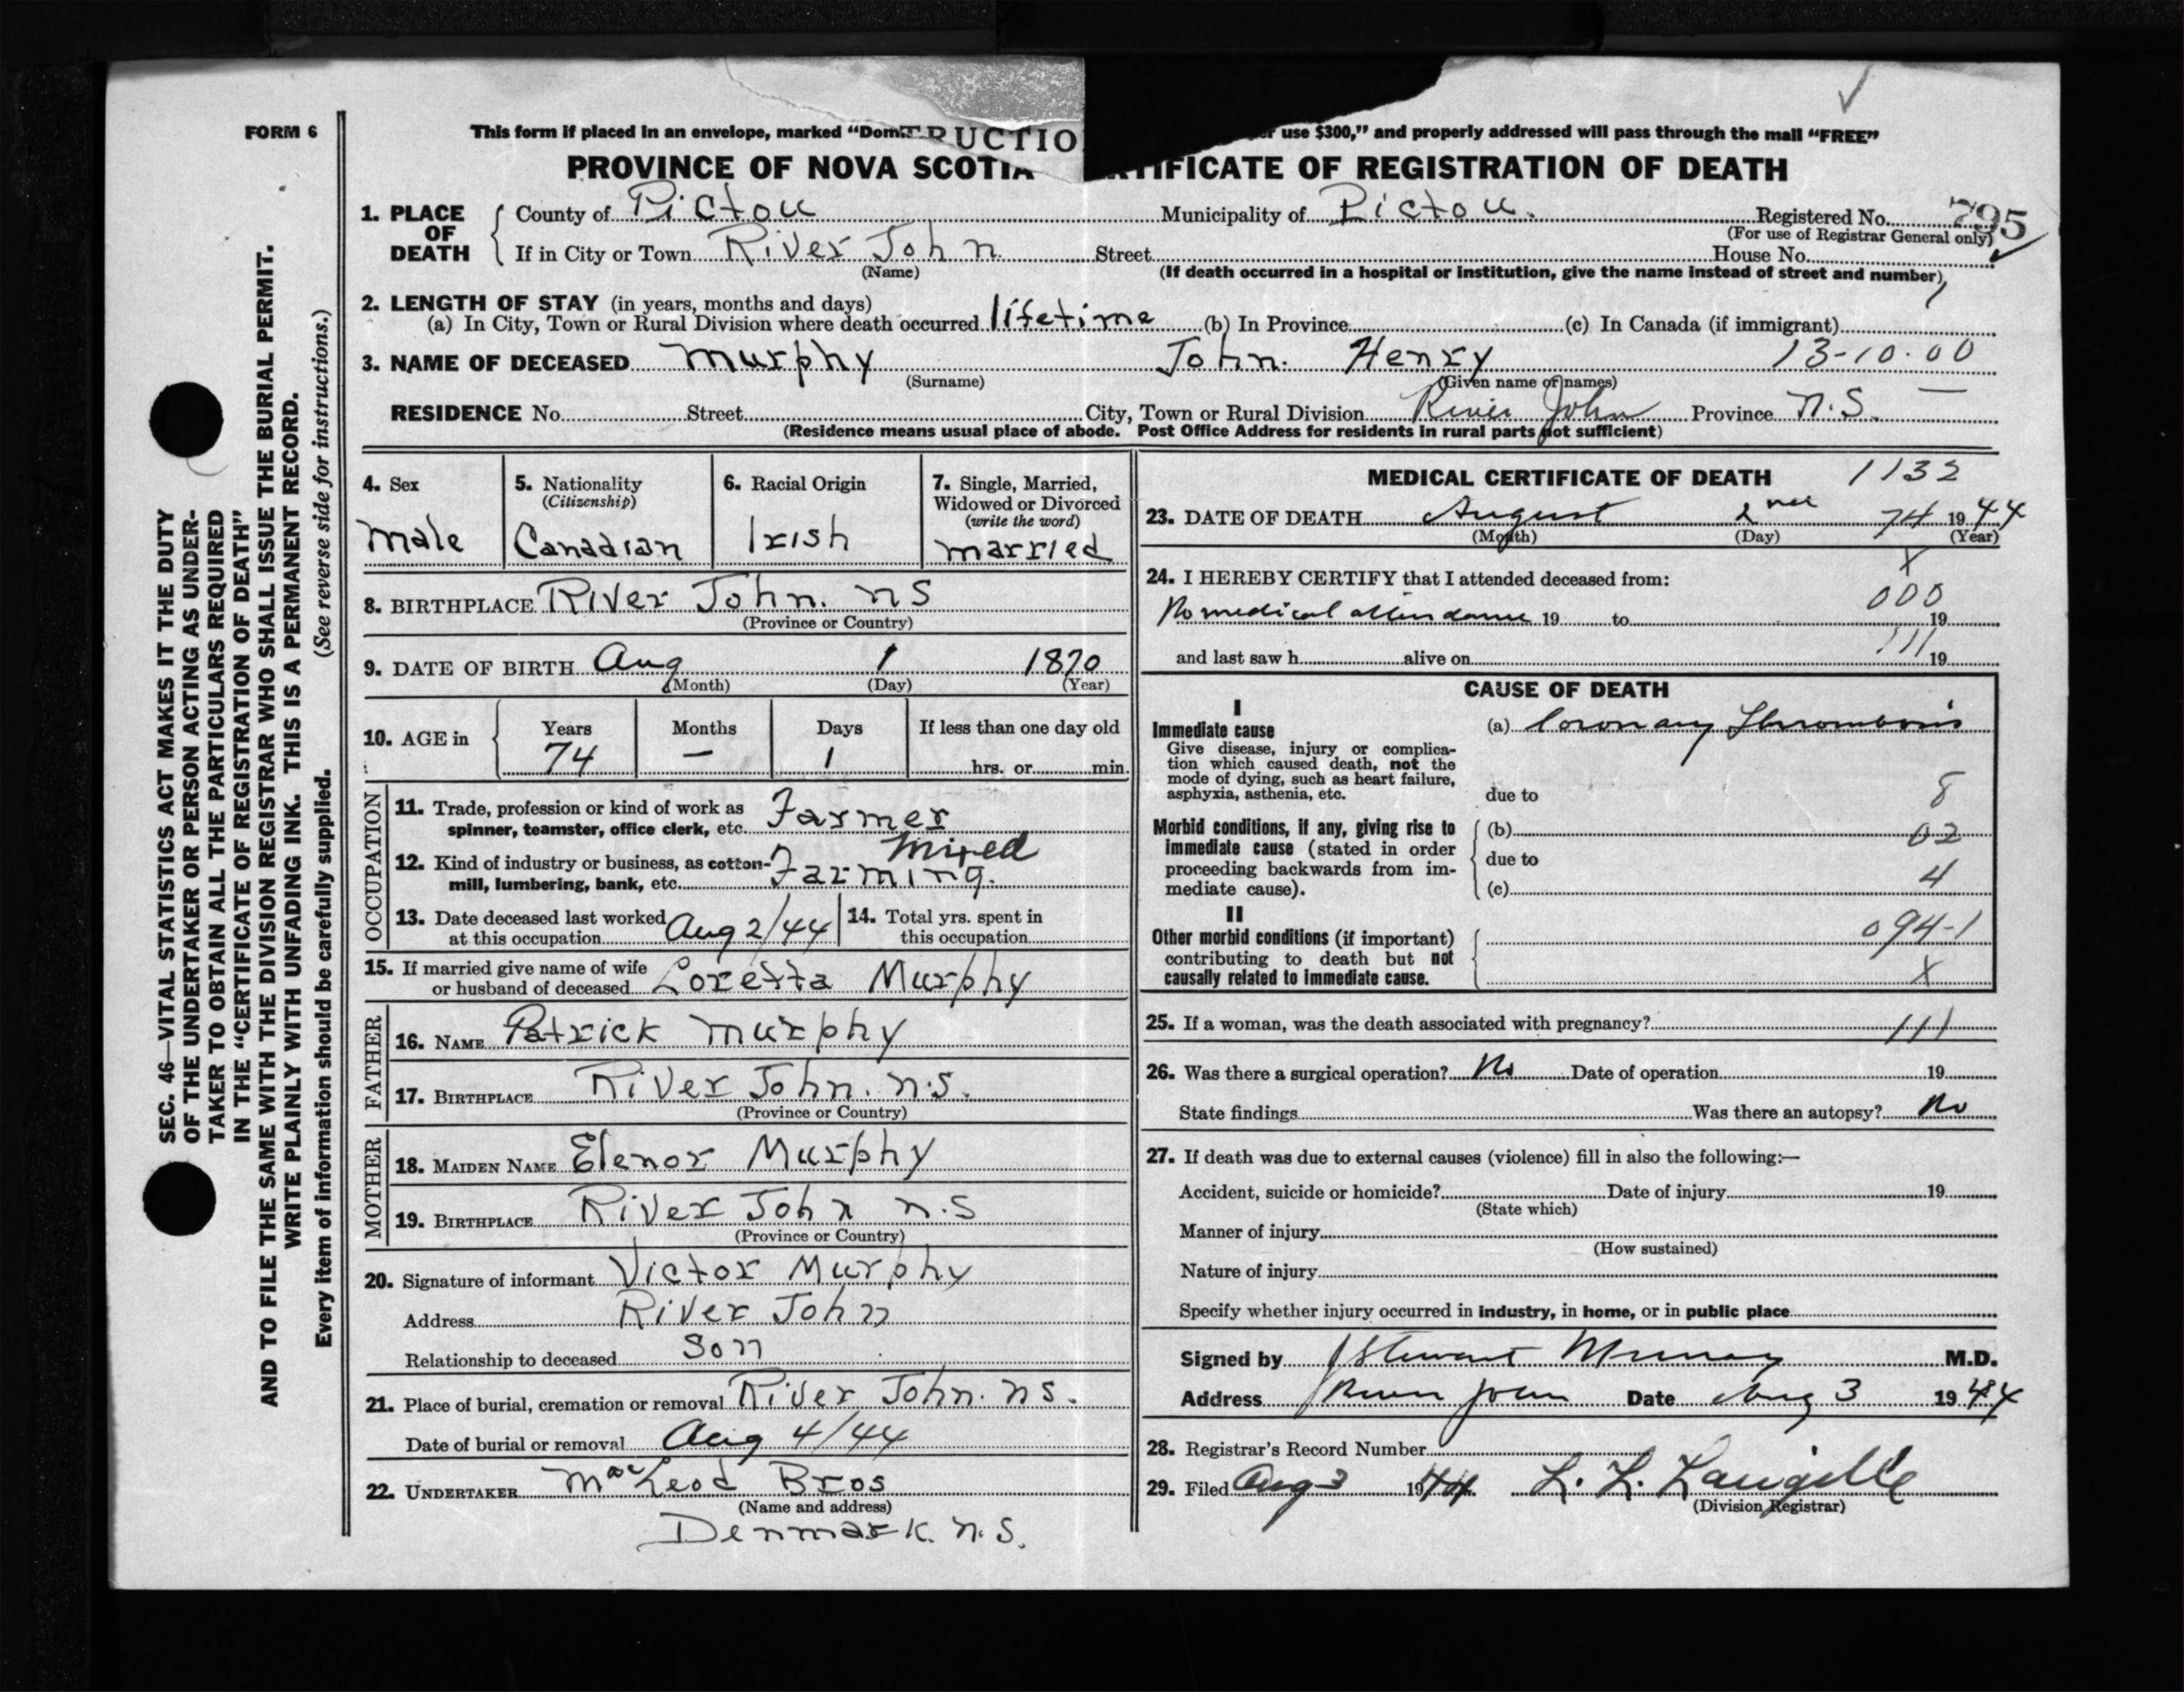 FORM 6
This form if placed in an envelope, marked “Dom
RUCTIO
use $300,” and properly addressed will pass through the mail “FREE”
PROVINCE OF NOVA SCOTIA
IFICATE OF REGISTRATION OF DEATH
1. PLACE OF DEATH County of Pictou Municipality of Pictou. Registered No. 795
(For use of Registrar General only)
If in City or Town River John Street House No.
(Name) (If death occurred in a hospital or institution, give the name instead of street and number)
2. LENGTH OF STAY (in years, months and days)
(a) In City, Town or Rural Division where death occurred lifetime (b) In Province (c) In Canada (if immigrant)
3. NAME OF DECEASED Murphy John. Henry 13-10-00
(Surname) (Given name of names)
RESIDENCE No. Street City, Town or Rural Division River John Province N.S.
(Residence means usual place of abode. Post Office Address for residents in rural parts not sufficient)
4. Sex
male
5. Nationality
(Citizenship)
Canadian
6. Racial Origin
Irish
7. Single, Married,
Widowed or Divorced
(write the word)
married
8. BIRTHPLACE River John. NS
(Province or Country)
9. DATE OF BIRTH Aug 1 1870
(Month) (Day) (Year)
10. AGE in Years Months Days If less than one day old
74 – 1 hrs. or min.
OCCUPATION
11. Trade, profession or kind of work as
spinner, teamster, office clerk, etc. Farmer
12. Kind of industry or business, as cotton-
mill, lumbering, bank, etc. Mixed Farming.
13. Date deceased last worked
at this occupation Aug 2/44
14. Total yrs. spent in
this occupation
15. If married give name of wife
or husband of deceased Loretta Murphy
FATHER
16. NAME Patrick Murphy
17. BIRTHPLACE River John. N.S.
(Province or Country)
MOTHER
18. MAIDEN NAME Elenor Murphy
19. BIRTHPLACE River John N.S
(Province or Country)
20. Signature of informant Victor Murphy
Address River John
Relationship to deceased Son
21. Place of burial, cremation or removal River John. NS.
Date of burial or removal Aug 4/44
22. UNDERTAKER MacLeod Bros
(Name and address)
Denmark. N.S.
MEDICAL CERTIFICATE OF DEATH 1132
23. DATE OF DEATH August 2nd 74 1944
(Month) (Day) (Year)
X
24. I HEREBY CERTIFY that I attended deceased from:
000
No medical attendance 19 to 19
111
and last saw h alive on 19
CAUSE OF DEATH
I
Immediate cause
Give disease, injury or complica-
tion which caused death, not the
mode of dying, such as heart failure,
asphyxia, asthenia, etc.
(a) Coronary Thrombosis
due to 8
Morbid conditions, if any, giving rise to
immediate cause (stated in order
proceeding backwards from im-
mediate cause).
(b) 02
due to
(c) 4
II
Other morbid conditions (if important)
contributing to death but not
causally related to immediate cause.
094-1
X
25. If a woman, was the death associated with pregnancy? 111
26. Was there a surgical operation? No Date of operation 19
State findings Was there an autopsy? No
27. If death was due to external causes (violence) fill in also the following:—
Accident, suicide or homicide? Date of injury 19
(State which)
Manner of injury
(How sustained)
Nature of injury
Specify whether injury occurred in industry, in home, or in public place
Signed by J Stewart Murray M.D.
Address River John Date Aug 3 1944
28. Registrar's Record Number
29. Filed Aug 3 1944. L. L. Langille
(Division Registrar)
SEC. 46—VITAL STATISTICS ACT MAKES IT THE DUTY
OF THE UNDERTAKER OR PERSON ACTING AS UNDER-
TAKER TO OBTAIN ALL THE PARTICULARS REQUIRED
IN THE “CERTIFICATE OF REGISTRATION OF DEATH”
AND TO FILE THE SAME WITH THE DIVISION REGISTRAR WHO SHALL ISSUE THE BURIAL PERMIT.
WRITE PLAINLY WITH UNFADING INK. THIS IS A PERMANENT RECORD.
Every item of information should be carefully supplied. (See reverse side for instructions.)